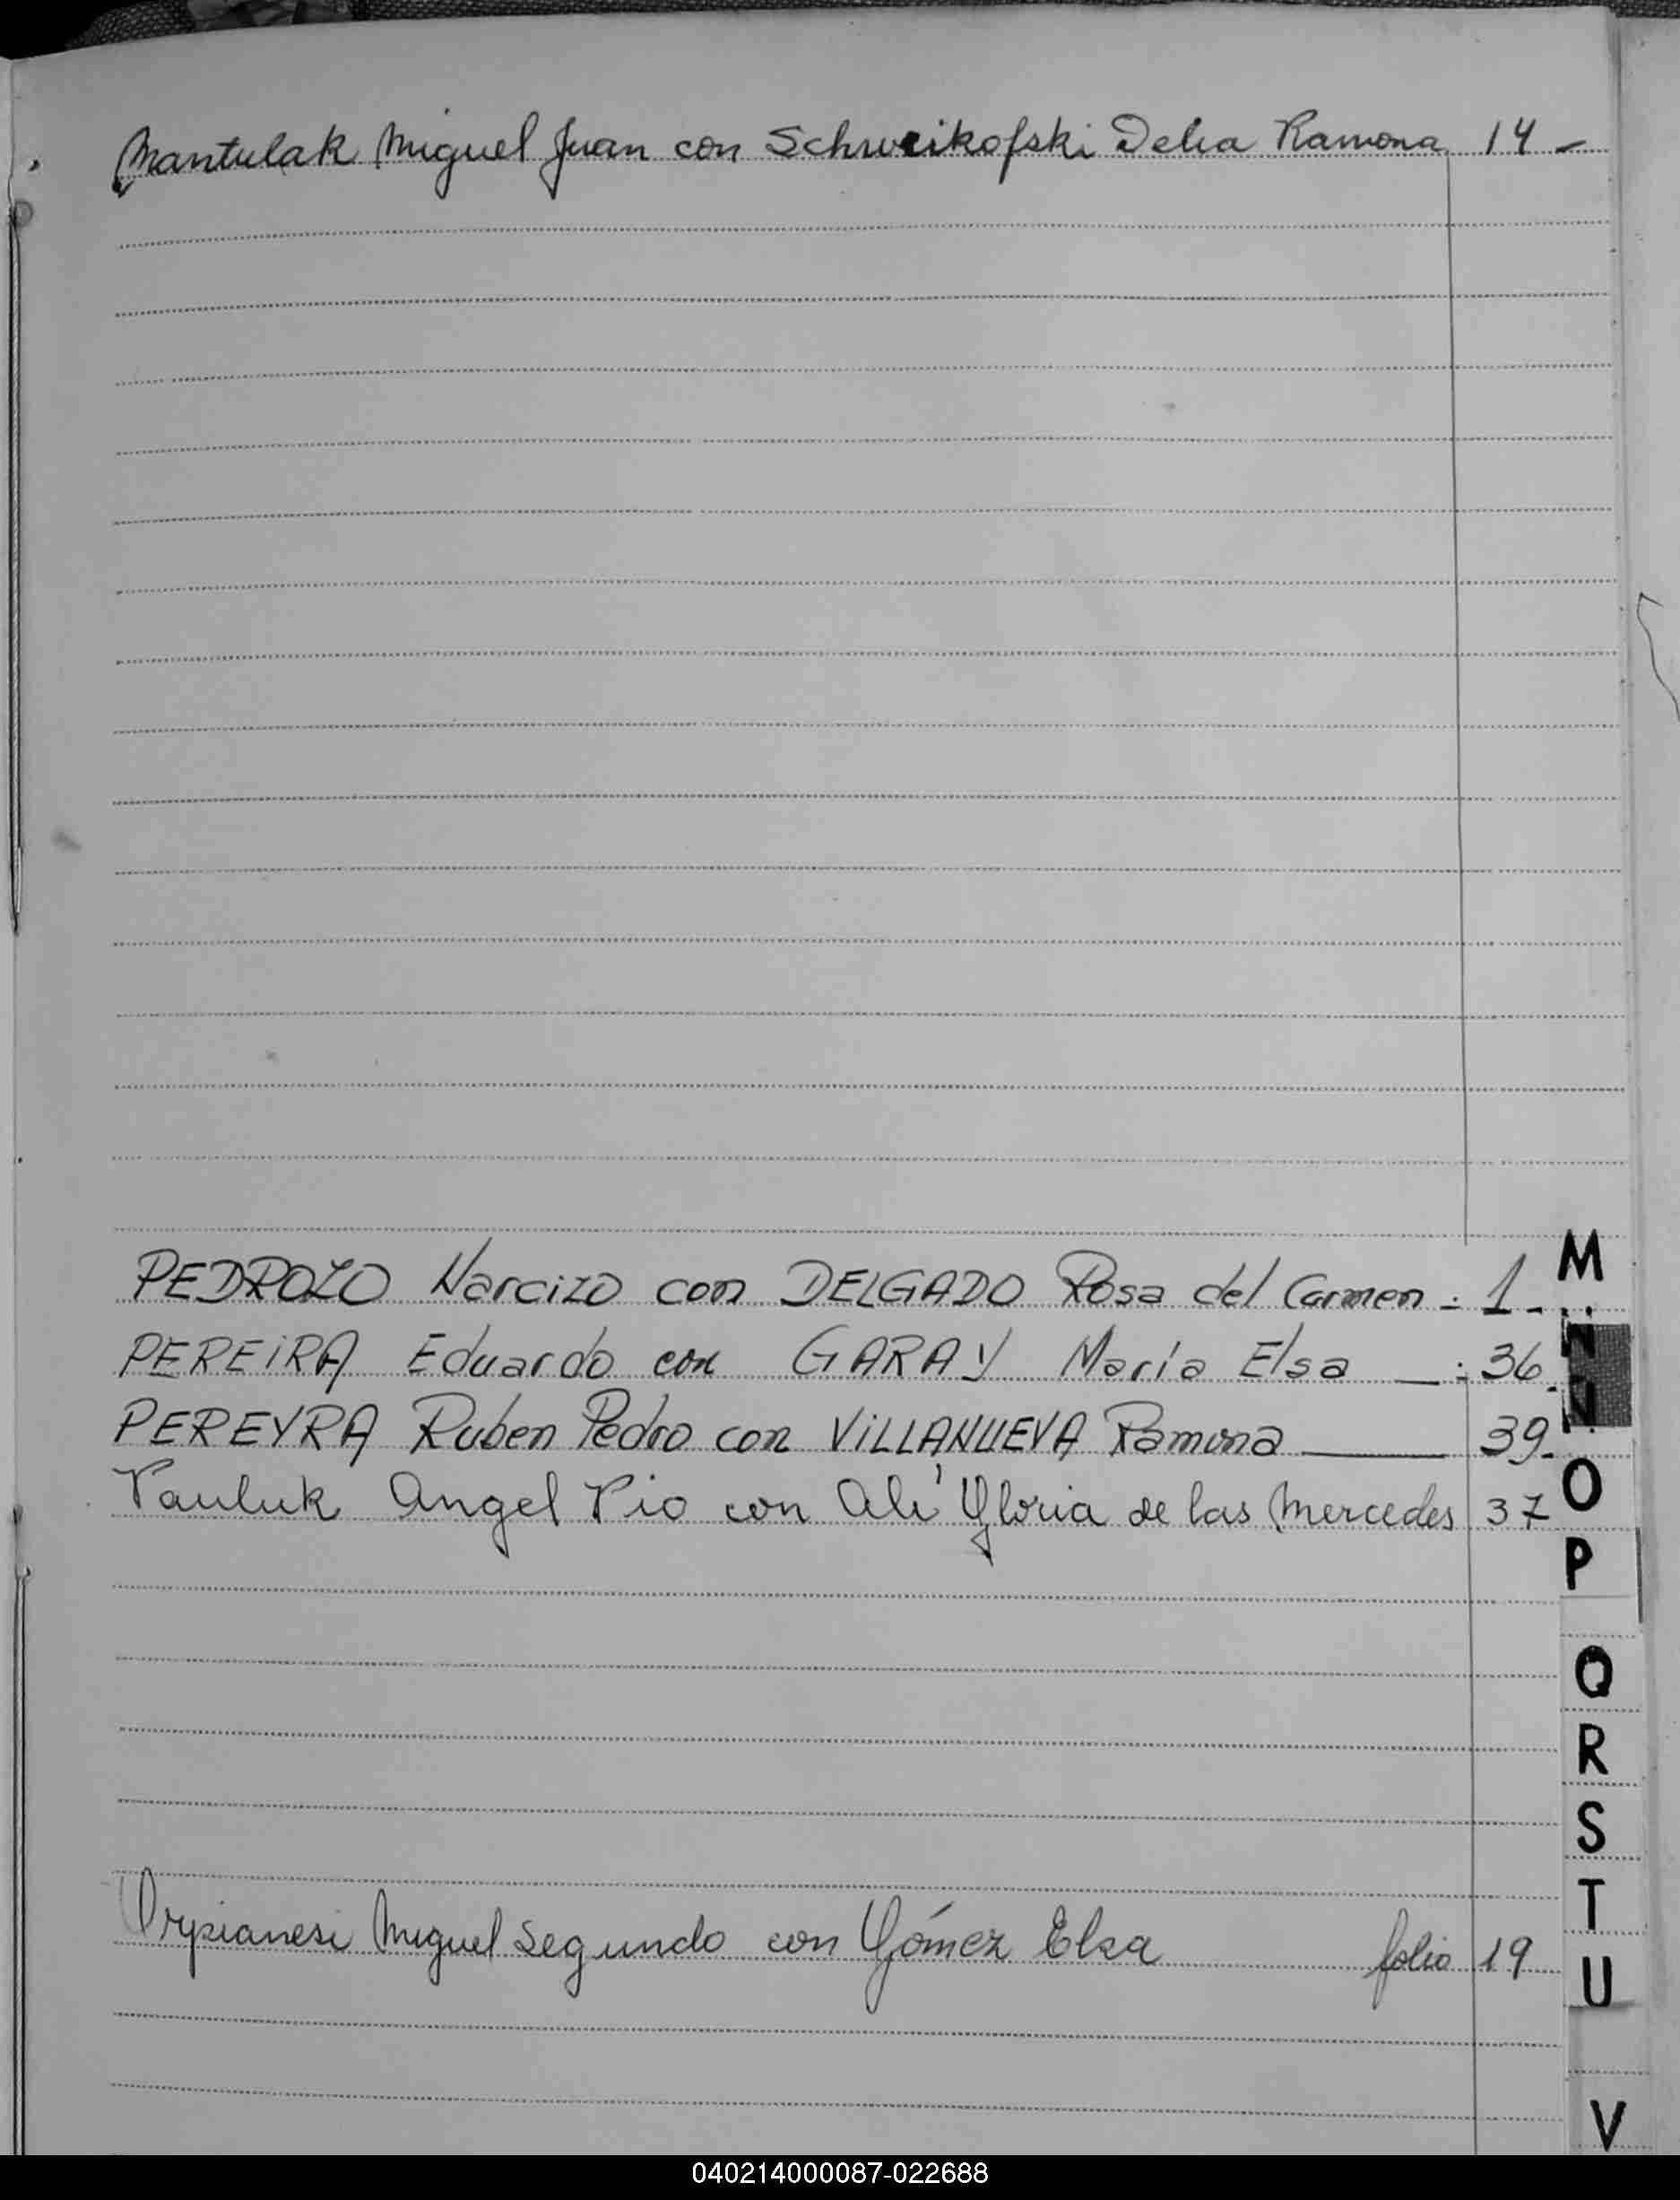 Mantulak Miguel Juan con Schweikofski Delia Ramona 14 -
PEDROZO Narcizo con DELGADO Rosa del Carmen - 1 -
PEREIRA Eduardo con GARAY María Elsa — : 36.
PEREYRA Ruben Pedro con ViLLANUEVA Ramona — 39.
Pauluk Angel Pio con Ali Gloria de las Mercedes 37
Miguel Segundo con Gómez Elsa folio 19
M
N
N
O
P
Q
R
S
T
U
V
040214000087-022688